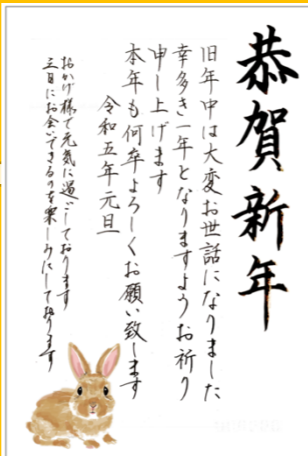 恭賀新年
旧年中は大変お世話になりました
幸多き一年となりますようお祈り
申し上げます
本年も何卒よろしくお願い致します
令和五年元旦
おかげ様で元気に過ごしております
三日にお会いできるのを楽しみにしております